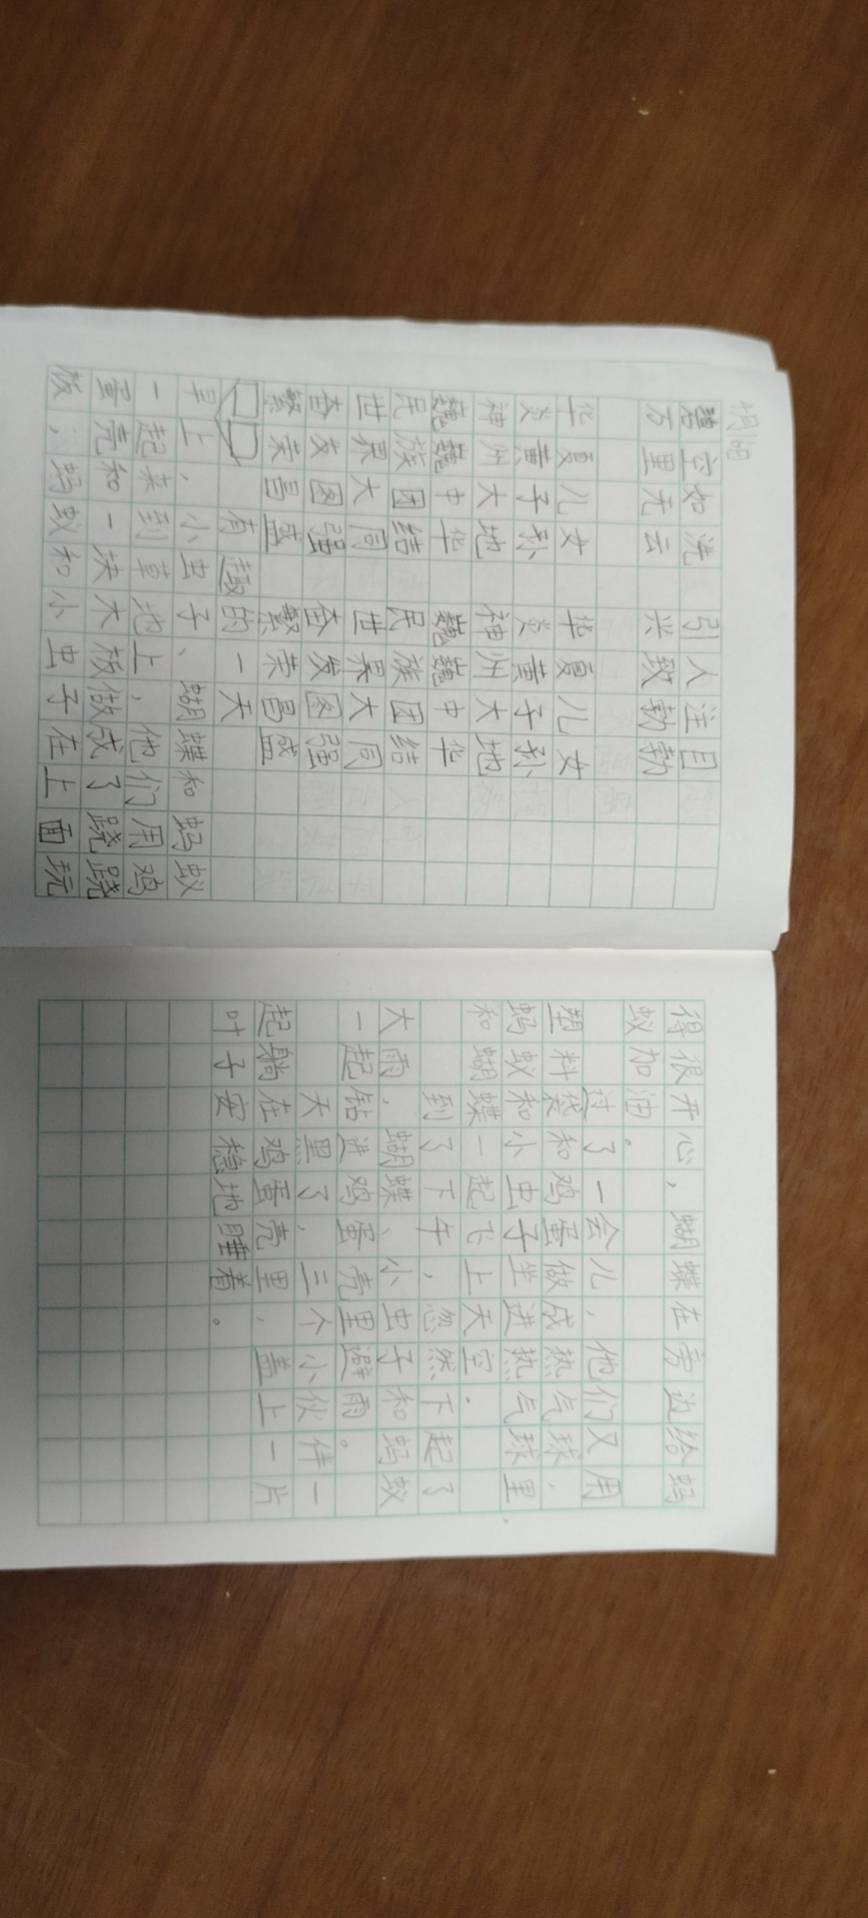 明的
碧空如洗 引人注目
万里无云 兴致勃勃
华夏儿女 华夏儿女
炎黄子孙 炎黄子孙
神州大地 神州大地
巍巍中华 巍巍中华
民族团结 民族团结
世界大同 世界大同
奋发图强 奋发图强
繁荣昌盛 繁荣昌盛
有趣的一天
早上，小虫子、蝴蝶和蚂蚁
一起来到草地上，他们用鸡
蛋壳和一块大板做成了跷跷
板，蚂蚁和小虫子在上面玩
得很开心，蝴蝶在旁边给蚂
蚁加油。
过了一会儿，他们又用
塑料袋和鸡蛋做成热气球，
蚂蚁和小虫子坐进热气球里
和蝴蝶一起飞上天空．
到了下午，忽然下起了
大雨，蝴蝶、小虫子和蚂蚁
一起钻进鸡蛋壳里避雨。
天黑了，三个小伙伴一
起躺在鸡蛋壳里，盖上一片
叶子安稳地睡着。